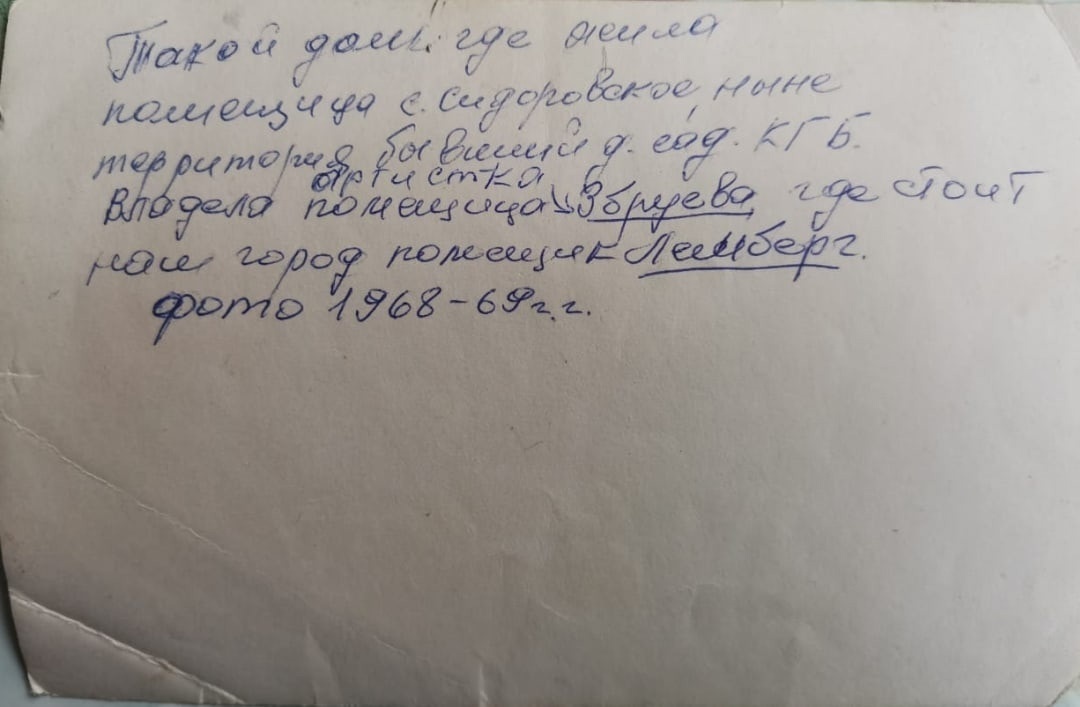 Такой дом: где жила
помещица с. Сидоровское, ныне
территория бывший д. сад. КГБ.
артистка
Владела помещица Збруева где стоит
наш город помещик Лемберг.
фото 1968-69г.г.